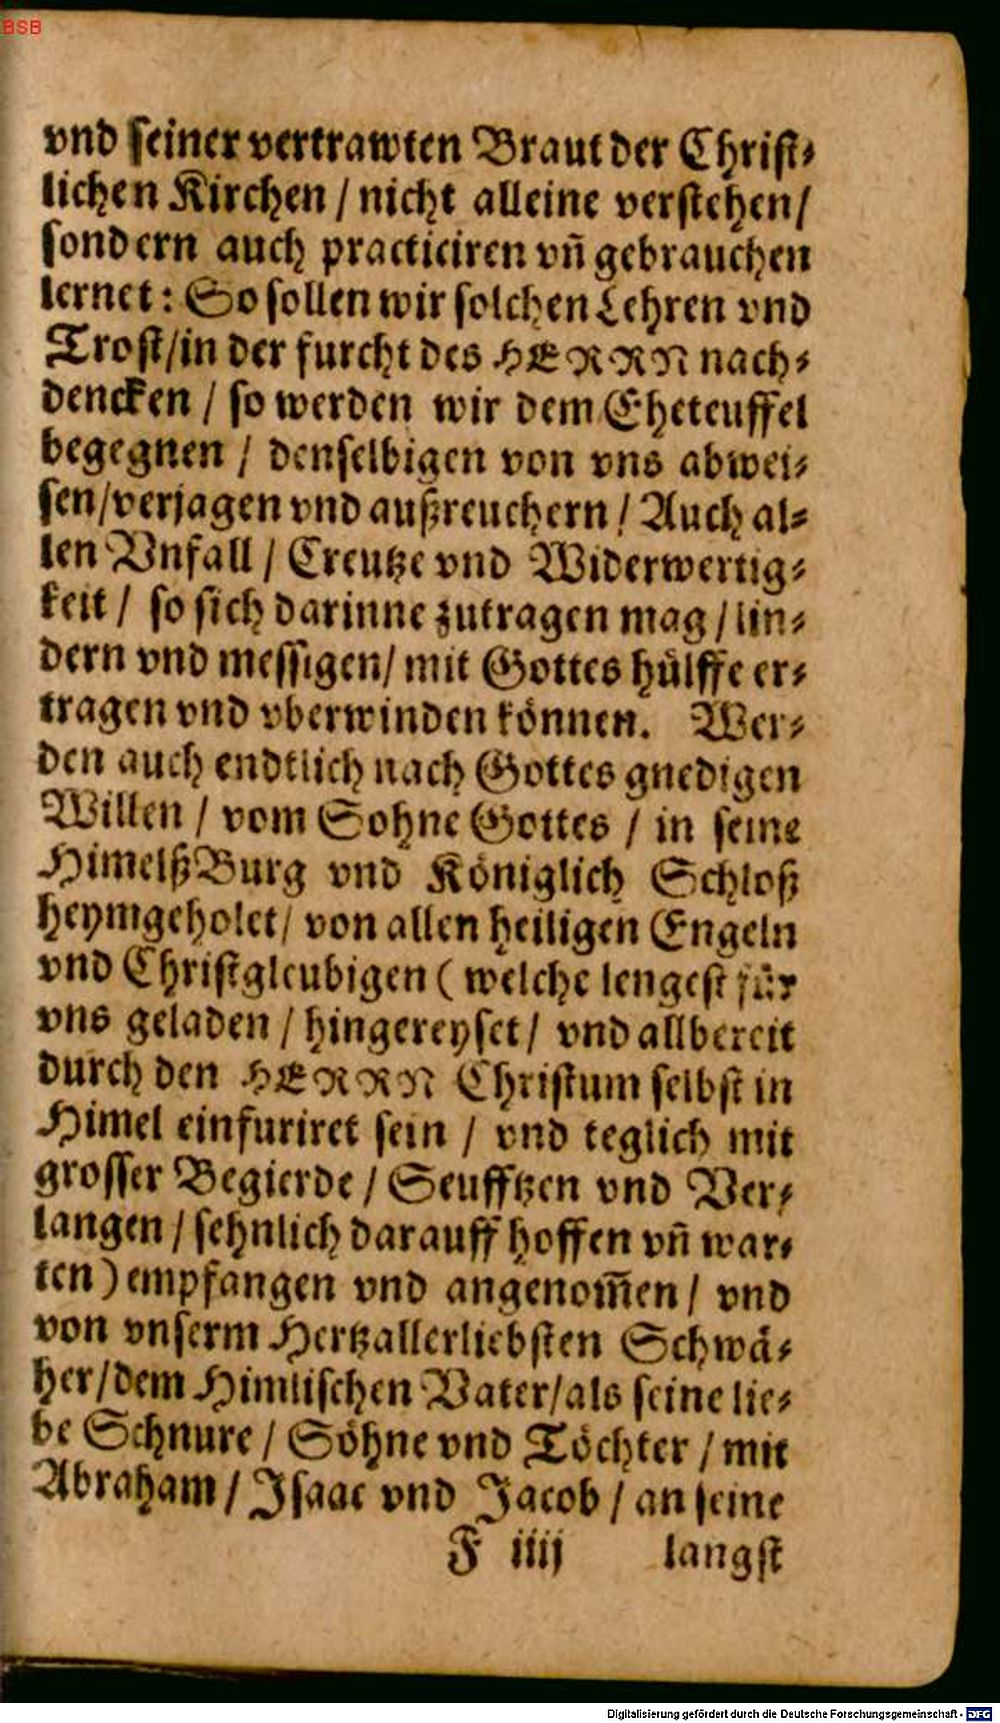 BSB
vnd seiner vertrawten Braut der Christ⸗
lichen Kirchen / nicht alleine verstehen /
sondern auch practiciren vñ gebrauchen
lernet : So sollen wir solchen Lehren vnd
Trost / in der furcht des HERRN nach⸗
dencken / so werden wir dem Eheteuffel
begegnen / denselbigen von vns abwei⸗
sen / verjagen vnd außreuchern / Auch al⸗
len Vnfall / Creutze vnd Widerwertig⸗
keit / so sich darinne zutragen mag / lin⸗
dern vnd messigen / mit Gottes hülffe er⸗
tragen vnd vberwinden können. Wer⸗
den auch endtlich nach Gottes gnedigen
Willen / vom Sohne Gottes / in seine
HimelßBurg vnd Königlich Schloß
heymgeholet / von allen heiligen Engeln
vnd Christgleubigen ( welche lengest für
vns geladen / hingereyset / vnd allbereit
durch den HERRN Christum selbst in
Himel einfuriret sein / vnd teglich mit
grosser Begierde / Seufftzen vnd Ver⸗
langen / sehnlich darauff hoffen vñ war⸗
ten ) empfangen vnd angenom̃en / vnd
von vnserm Hertzallerliebsten Schwä⸗
her / dem Himlischen Vater / als seine lie⸗
be Schnure / Söhne vnd Töchter / mit
Abraham / Isaac vnd Jacob / an seine
F iiij langst
Digitalisierung gefördert durch die Deutsche Forschungsgemeinschaft - DFG